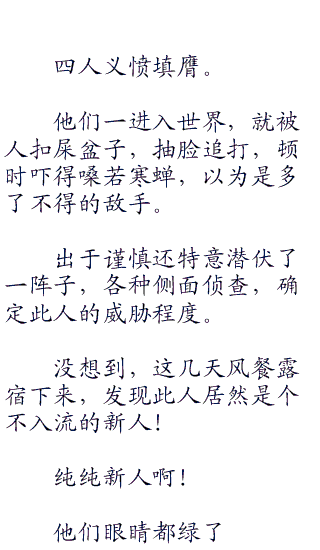 四人义愤填膺。
他们一进入世界，就被
人扣屎盆子，抽脸追打，顿
时吓得噤若寒蝉，以为是多
了不得的敌手。
出于谨慎还特意潜伏了
一阵子，各种侧面侦查，确
定此人的威胁程度。
没想到，这几天风餐露
宿下来，发现此人居然是个
不入流的新人！
纯纯新人啊！
他们眼睛都绿了